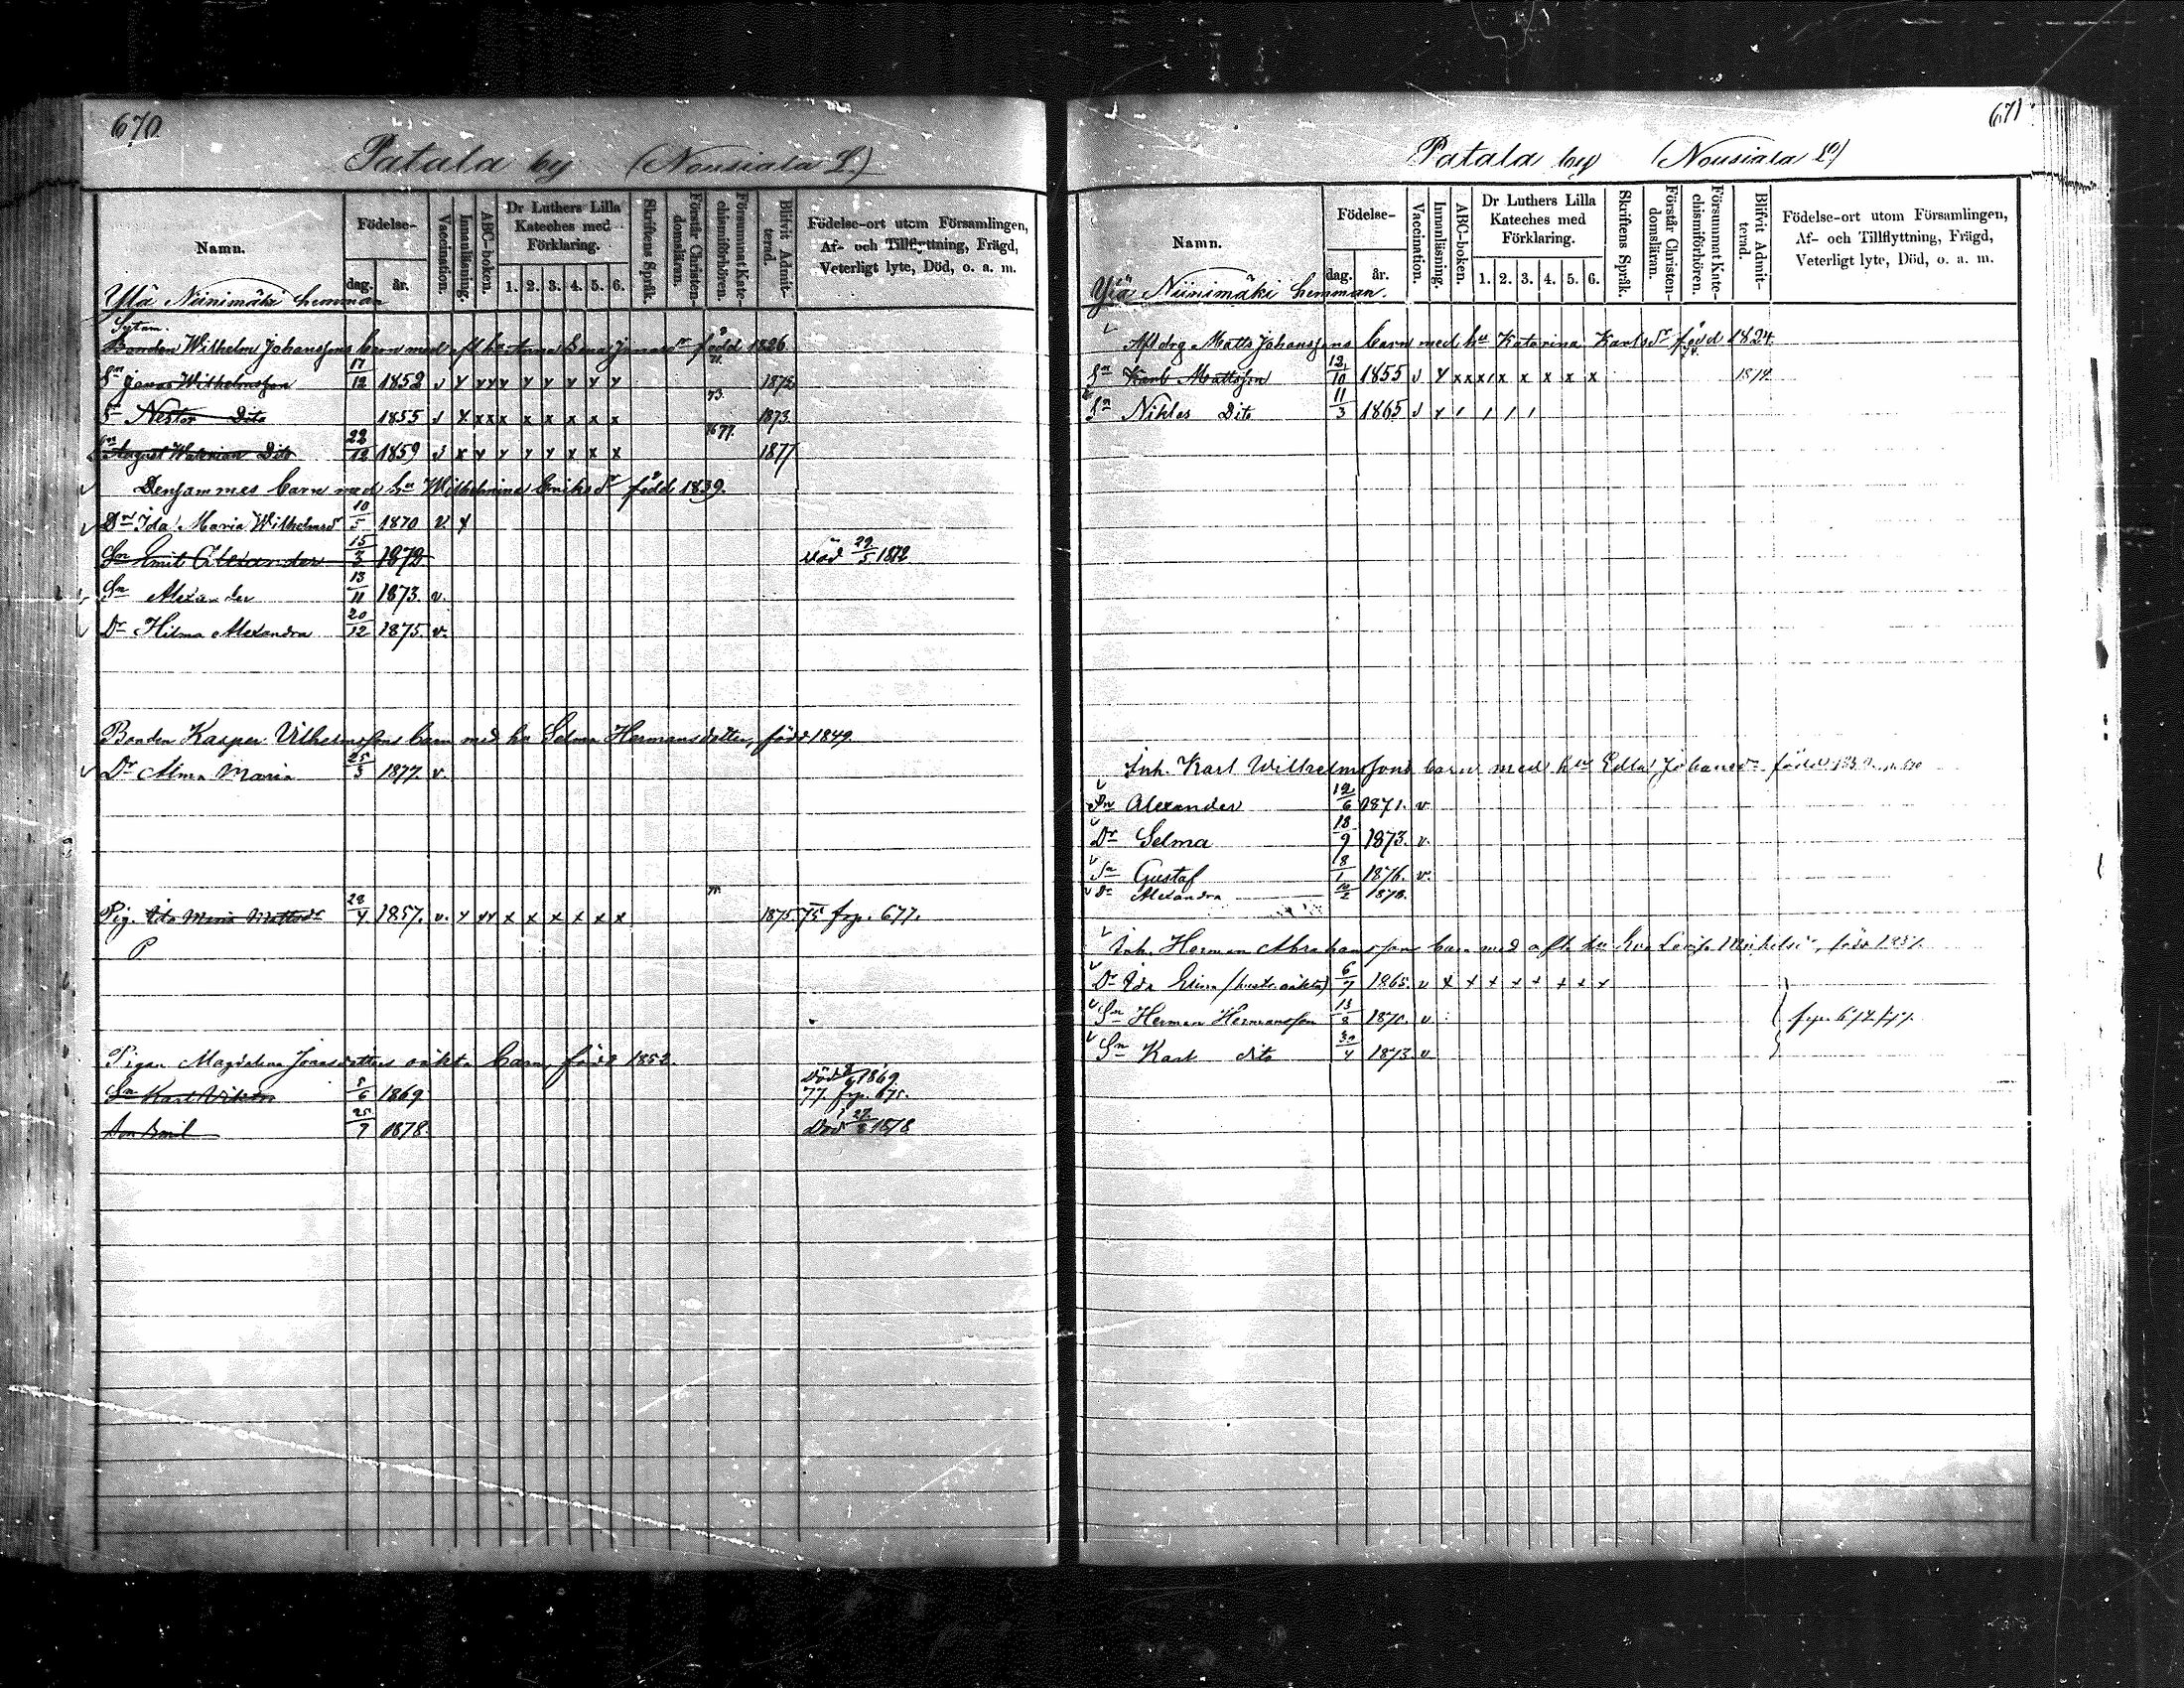 670
Patala by (Nousiala L.)
Namn. Födelse- dag. år. Vaccination. Innanläsning. ABC-boken. Dr Luthers Lilla Kateches med Förklaring. 1. 2. 3. 4. 5. 6. Skriftens Språk. Förstår Christendomsläran. Försummat Katechismiförhören. Blifvit Admitterad. Födelse-ort utom Församlingen, Af- och Tillflyttning, Frägd, Veterligt lyte, Död, o. a. m.
Ylä Niinimäki hemman
Sytn.
Bonden Wilhelm Johanssons barn med afl. h. Anna Lena Jonasdr född 1826
71.
Sn Jonas Wilhelmsson 17/12 1852 v x xxx x x x x x 1872
73.
Sn Nestor Dito 1855 v x xxx x x x x x 1873.
1677.
Sn August Walerian Dito 22/12 1859 v x x x x x x x x 1877
Densammes barn med hu Wilhelmina Eriksdr född 1839.
Dr Ida Maria Wilhelmsd 10/5 1870 v. x
Sn Emil Alexander 15/3 1872 död 29/5 1872.
Sn Alexander 13/11 1873. v.
Dr Hilma Alexandra 20/12 1875. v.
Bonden Kasper Vilhelmssons barn med hu Selma Hermansdotter, född 1849.
Dr Alma Maria 25/3 1877. v.
Pig. Ida Maria Mattsdr 28/4 1857. v. x xx x x x x x x 1875 75 frp. 677.
P
Pigan Magdalena Jonasdotters oäkta barn, född 1852.
Sn Karl Viktor 5/6 1869 Död 1869.
77. frp. 675.
Son Emil 25/7 1878. Död 1878
671
Patala by (Nousiala L.)
Namn. Födelse- dag. år. Vaccination. Innanläsning. ABC-boken. Dr Luthers Lilla Kateches med Förklaring. 1. 2. 3. 4. 5. 6. Skriftens Språk. Förstår Christendomsläran. Försummat Katechismiförhören. Blifvit Admitterad. Födelse-ort utom Församlingen, Af- och Tillflyttning, Frägd, Veterligt lyte, Död, o. a. m.
Ylä Niinimäki hemman.
Afl drg. Matts Johanssons barn med hu Katarina Karlsdr född 1824.
Sn Karl Mattsson 12/10 1855 v x xxx x x x x x 1874.
Sn Niklas Dito 11/3 1865 v x / / / /
Inh. Karl Wilhelmssons barn med hu Edla Johansdr född
Sn Alexander 12/6 1871. v
Dr Selma 18/9 1873. v.
Sn Gustaf 8/1 1876. v.
Dr Alexandra 10/2 1878.
Inh. Herman Abrahamssons barn med afl. hu Eva Lovisa Mickelsdr, född
Dr Ida Elina (hustr. oäkta) 6/7 1865. v x x x x x x x x
Sn Herman Hermansson 13/8 1870. v. frp. 672.
Sn Karl dito 30/4 1873 v